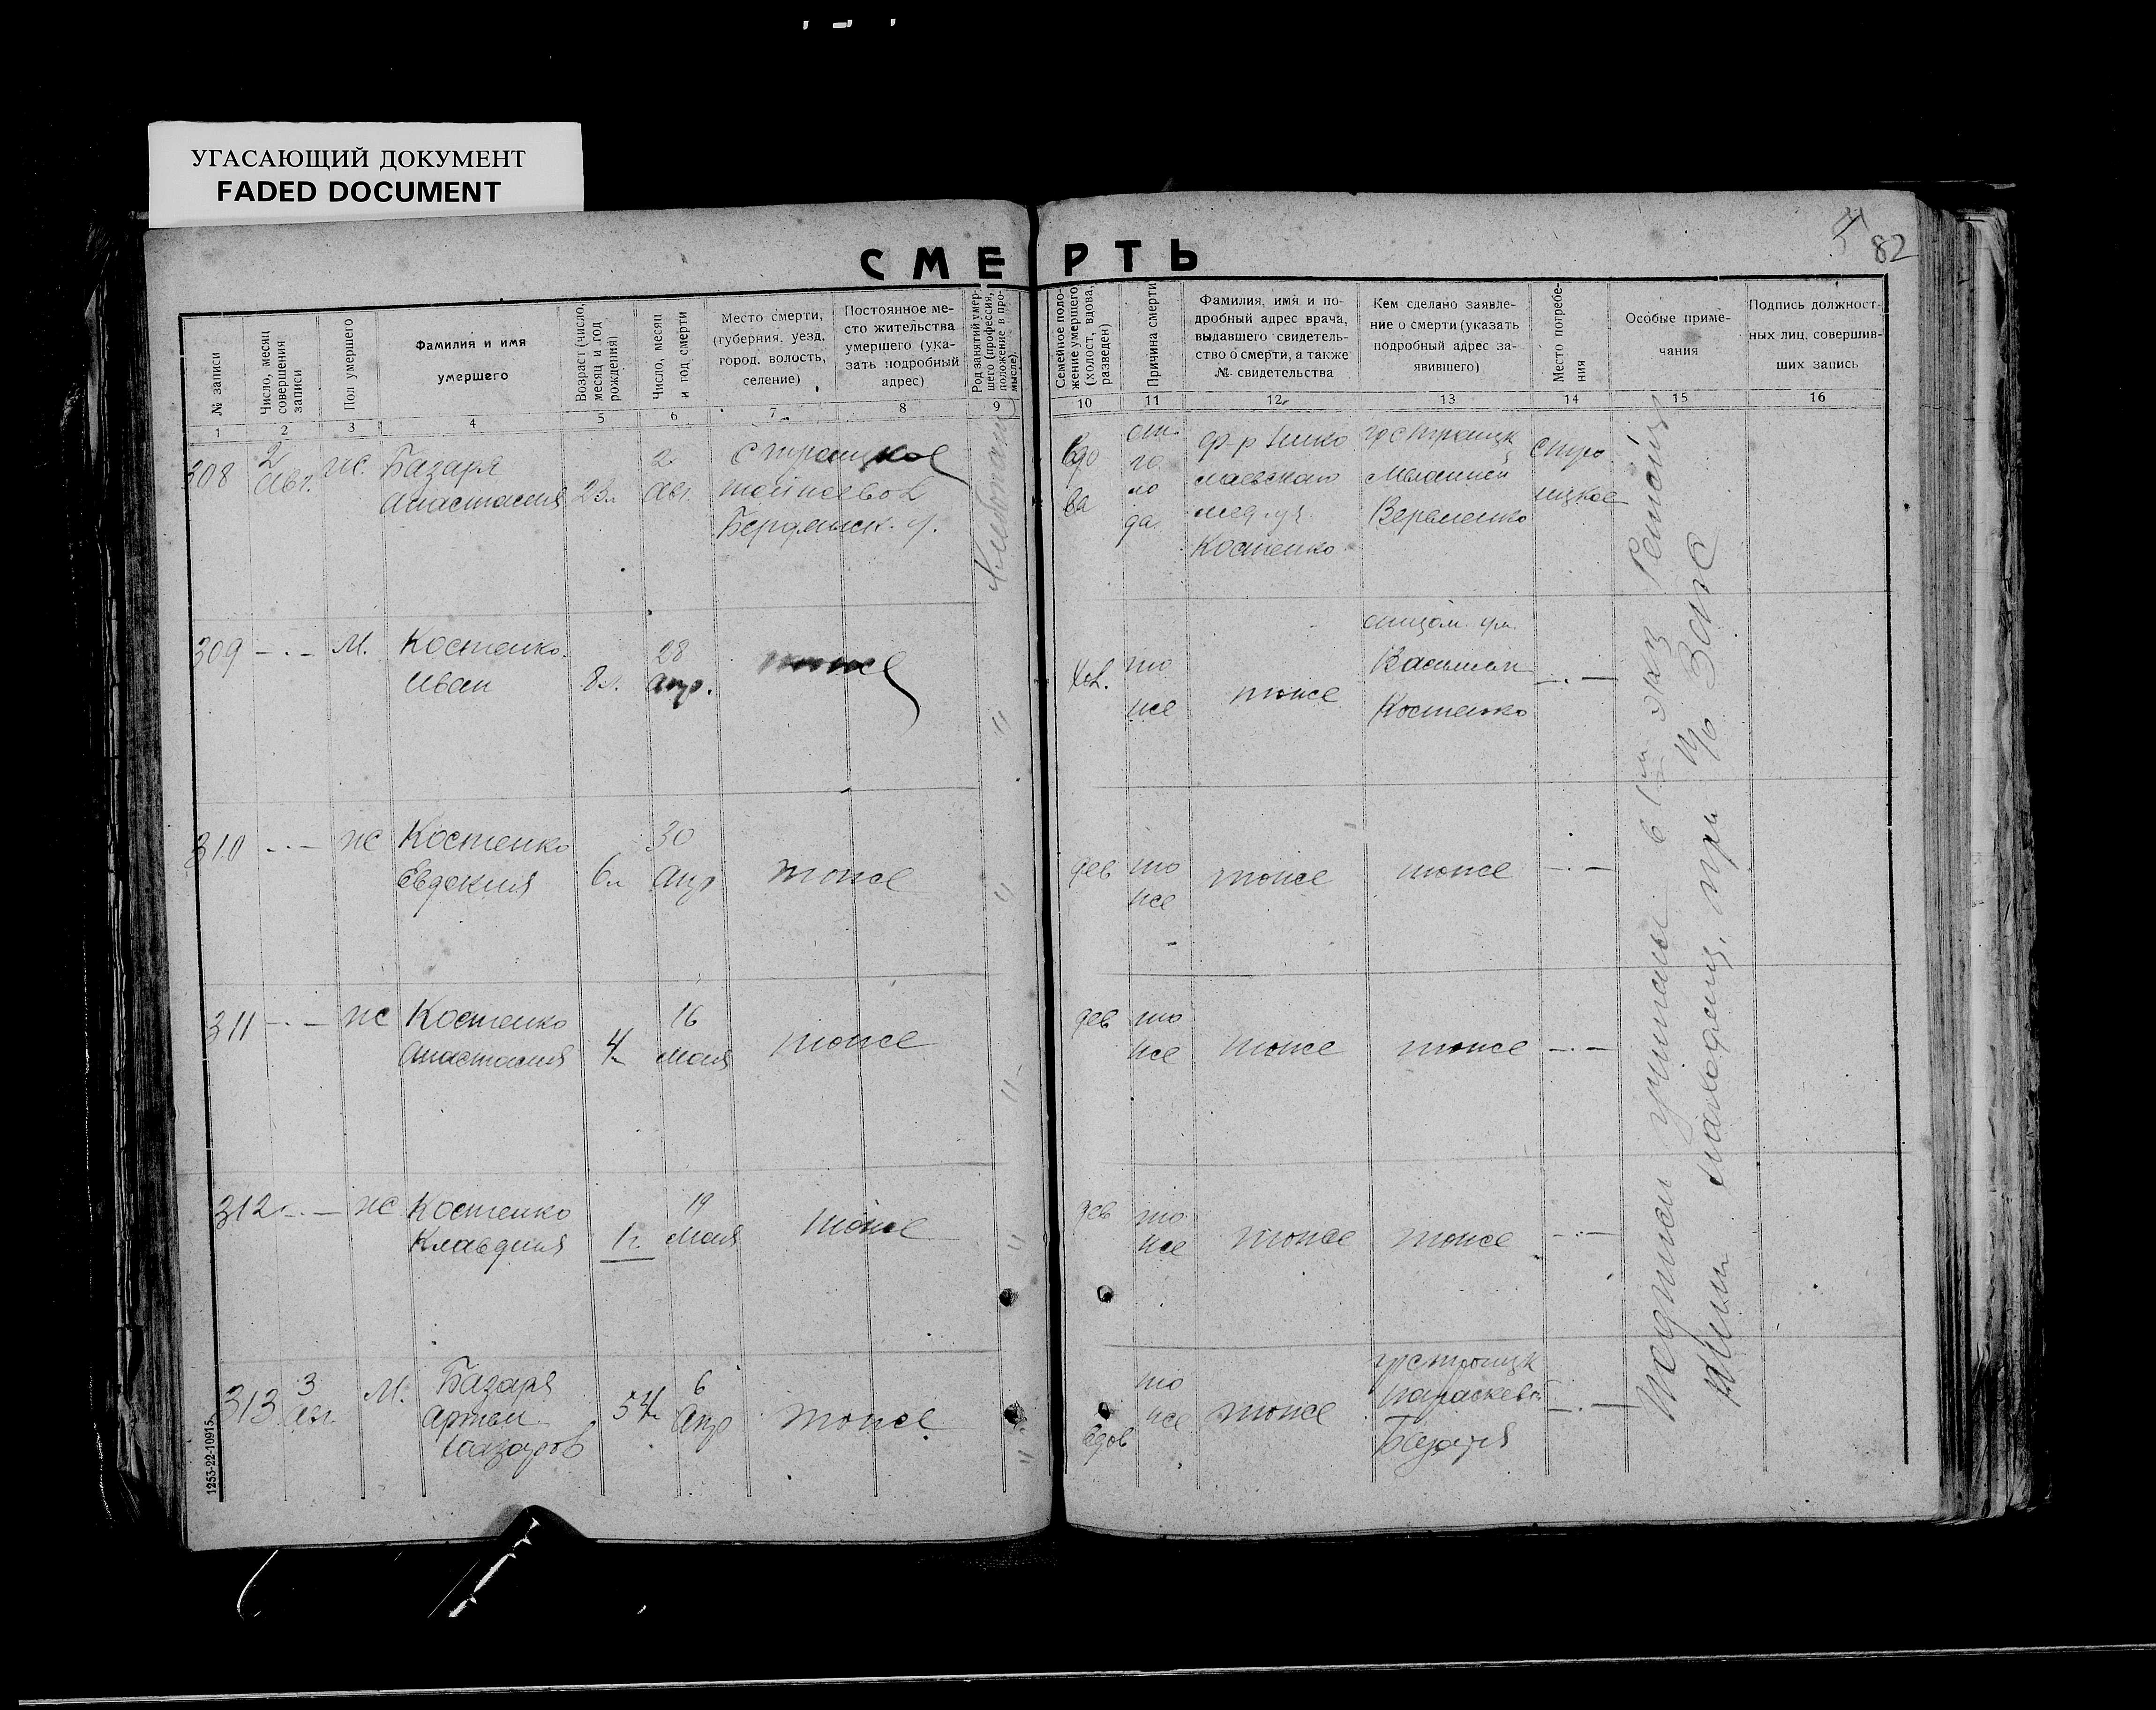 УГАСАЮЩИЙ ДОКУМЕНТ
FADED DOCUMENT
82
СМЕРТЬ
№ записи
Число, месяц
совершения
записи
Пол умершего
Фамилия и имя
умершего
Возраст (число,
месяц и год
рождения)
Число, месяц
и год смерти
Место смерти,
(губерния, уезд,
город, волость,
селение)
Постоянное ме-
сто жительства
умершего (ука-
зать подробный
адрес)
Род занятий умер-
шего (профессия,
положение в про-
мысле).
Семейное поло-
жение умершего
(холост, вдова,
разведен)
Причина смерти
Фамилия, имя и по-
дробный адрес врача,
выдавшего свидетель-
ство о смерти, а также
№ свидетельства
Кем сделано заявле-
ние о смерти (указать
подробный адрес за-
явившего)
Место погребе-
ния
Особые приме-
чания
Подпись должност-
ных лиц, совершив-
ших запись
1 2 3 4 5 6 7 8 9 10 11 12 13 14 15 16
308
2
Авг.
ж.
Базаря
Анастасия
23 л
2
Авг.
с Троицкое
Бердянск. у.
Хлебопаш
вдо
ва
от
го
ло
да
мед. уч.
Костенко
гр с Троицк
Меланией
Верменко
с Тро
ицкое
309 -.- М.
Костенко
Иван
8 л.
28
апр.
тоже
"
Хол.
то
же
тоже
отцом
Василием
Костенко
-.-
310 -.- ж
Костенко
Евдокия
6 л
30
Апр
тоже
"
дев
то
же
тоже
тоже
-.-
311 -.- ж
Костенко
Анастасия
4 л
16
мая
тоже
"
дев
то
же
тоже
тоже
-.-
312 -.- ж
Костенко
Клавдия
1 г.
19
мая
тоже
"
дев
то
же
тоже
тоже
-.-
313
3
авг.
М.
Базаря
Артем
Лазаров
54 л
6
Апр
тоже
"
вдов
то
же
тоже
гр с Троицк
Параскевой
Базаря
-.-
в 1м экз
находящ. при
ЗАГС
1253-22-10915